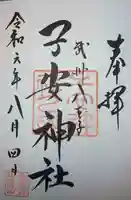 奉拝
武州八王子
子安神社
令和元年八月四日